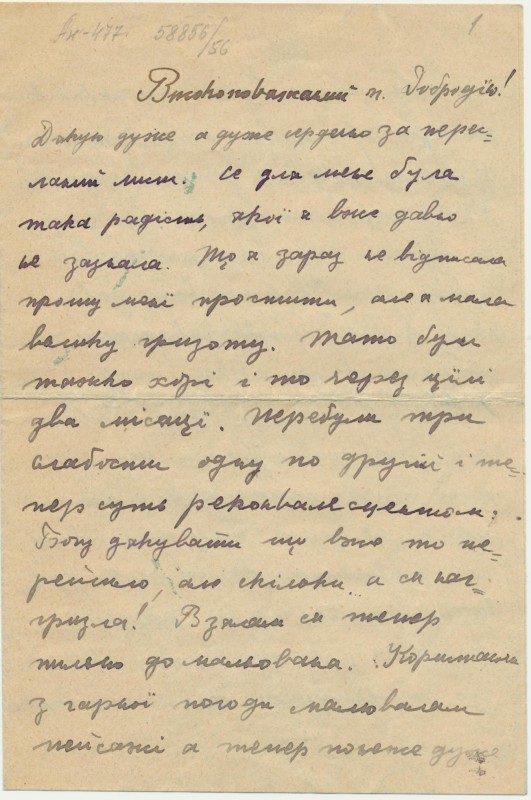 Ан-477 58855/56
1
Високоповажаний п. Добродію!
Дякую дуже а дуже сердечно за перес=
ланий лист. Се для мене була
така радість, якої я вже давно
не зазнала. Що я зараз не відписала
прошу мені простити, але я мала
велику гризоту. Тато були
тяжко хорі і то через цілі
два місяці. Перебули три
слабости одну по другій і те=
пер суть реконвалєсцентом.
Богу дякувати що вже то пе=
рейшло, але скільки я ся наг=
ризла! Взялам ся тепер
пильно до мальованя. Користаючи
з гарної погоди малювалам
пейсажі а тепер понеже дуже